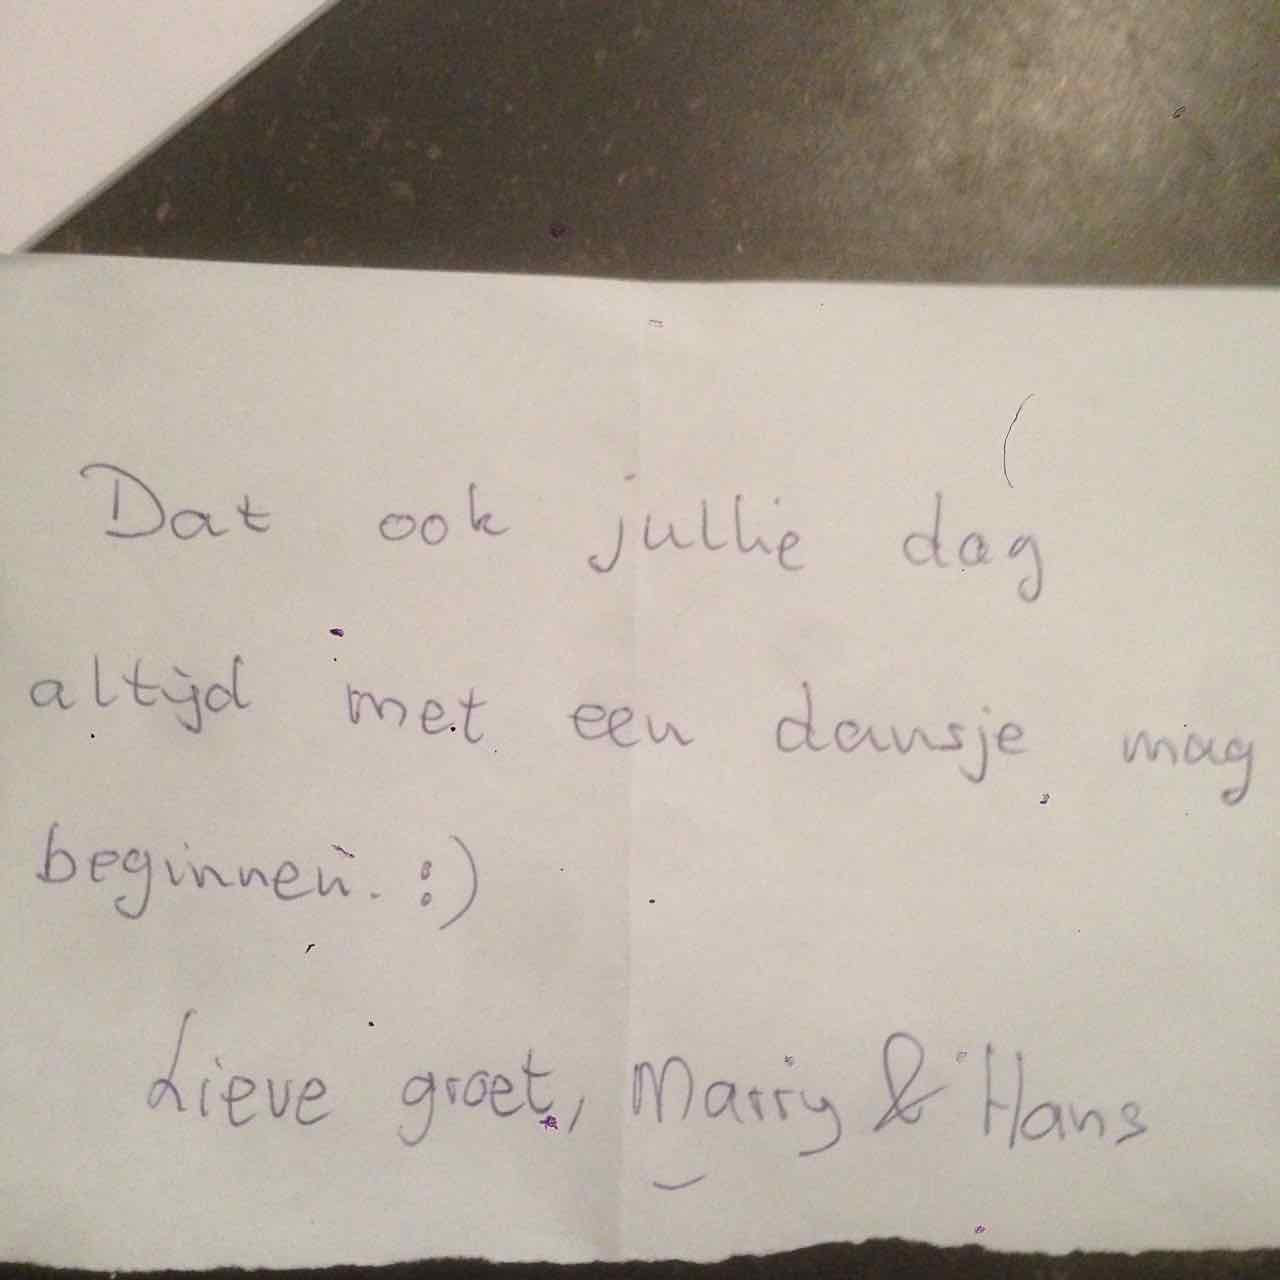 Dat ook jullie dag
altijd met een dansje mag
beginnen. :)
Lieve groet, Marry & Hans